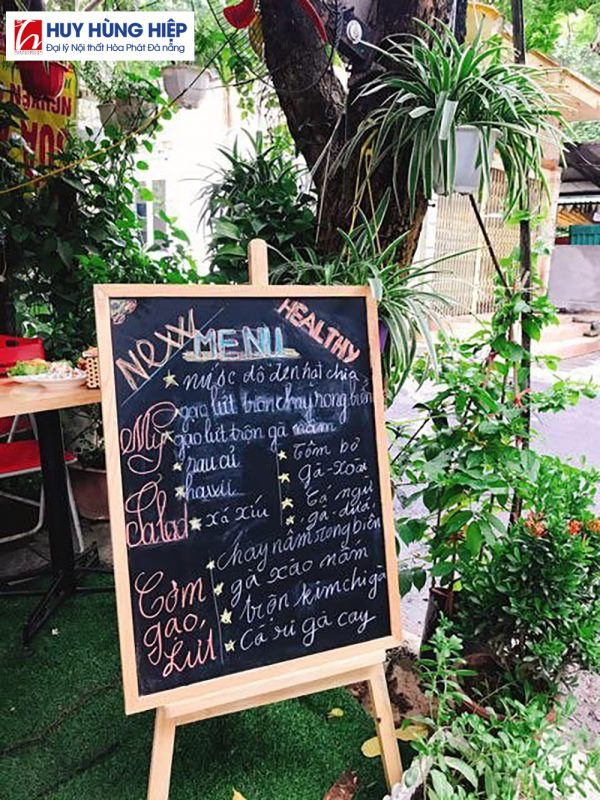 HUY HÙNG HIỆP
Đại lý Nội thất Hòa Phát Đà nẵng
New
MENU
HEALTHY
nước đỗ đen hạt chia
Mỳ
gạo lứt trộn chay rong biển
gạo lứt trộn gà nấm
Salad
rau củ
hawii
xá xíu
Tôm bơ
gà-xoài
Cá ngừ
gà-dứa
Cơm
gạo
Lứt
chay nấm rong biển
gà xào nấm
trộn kimchi gà
gà cay